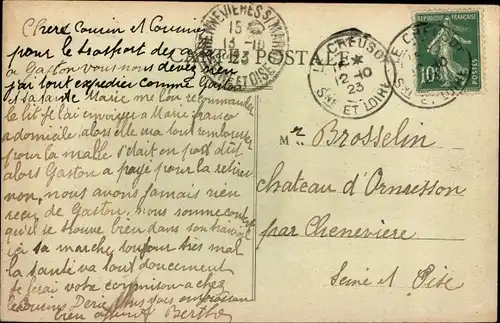 Chers Cousin et Cousine
pour le trasport des
a Gaston vous nous devez rien
j'ai tout expedier comme Gaston
Marie me lon recommander
le lit je l'ai envoyer a Marie franco
a domicile alors elle ma tout rembourser
pour la malle s'etait en port dû
alors Gaston a payé pour la retirer
non, nous avons jamais rien
recu de Gaston, nous somme content
qu'il se trouve bien dans son travail
ici sa marche toujour très mal
la santé va tout doucement
je ferai votre commision a chez
le cousin
bien Berthe
CARTE POSTALE
CHENNEVIÈRES S/ MARNE
15
13-10
23
SEINE ET OISE
LE CREUSOT
12-10
23
SNE ET LOIRE
LE CREUSOT
10
SNE ET LOIRE
REPUBLIQUE FRANÇAISE
10c
POSTES
Mr Brosselin
chateau d'Ormesson
par Cheneviere
Seine et Oise